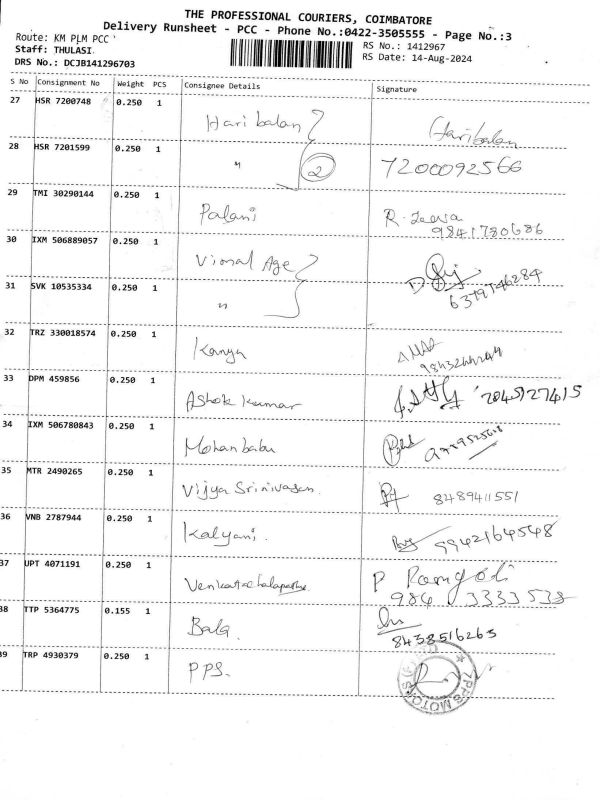 THE PROFESSIONAL COURIERS, COIMBATORE
Delivery Runsheet - PCC - Phone No.:0422-3505555 - Page No.:3
Route: KM PLM PCC
Staff: THULASI
DRS No.: DCJB141296703
RS No.: 1412967
RS Date: 14-Aug-2024
S No Consignment No Weight PCS Consignee Details Signature
27 HSR 7200748 0.250 1 Hari balan Haribalan
28 HSR 7201599 0.250 1 " 2 7200092566
29 TMI 30290144 0.250 1 Palani R. Jeeva
9841780686
30 IXM 506889057 0.250 1 Vimal Age
31 SVK 10535334 0.250 1 " 6379746284
32 TRZ 330018574 0.250 1 Kanya
33 DPM 459856 0.250 1 Ashok kumar
34 IXM 506780843 0.250 1 Mohan babu
35 MTR 2490265 0.250 1 Vijya Srinivasan. 8489411551
36 VNB 2787944 0.250 1 Kalyani. 9942164548
37 UPT 4071191 0.250 1 P
984 3333538
38 TTP 5364775 0.155 1 Bala.
8438516263
39 TRP 4930379 0.250 1 PPS.